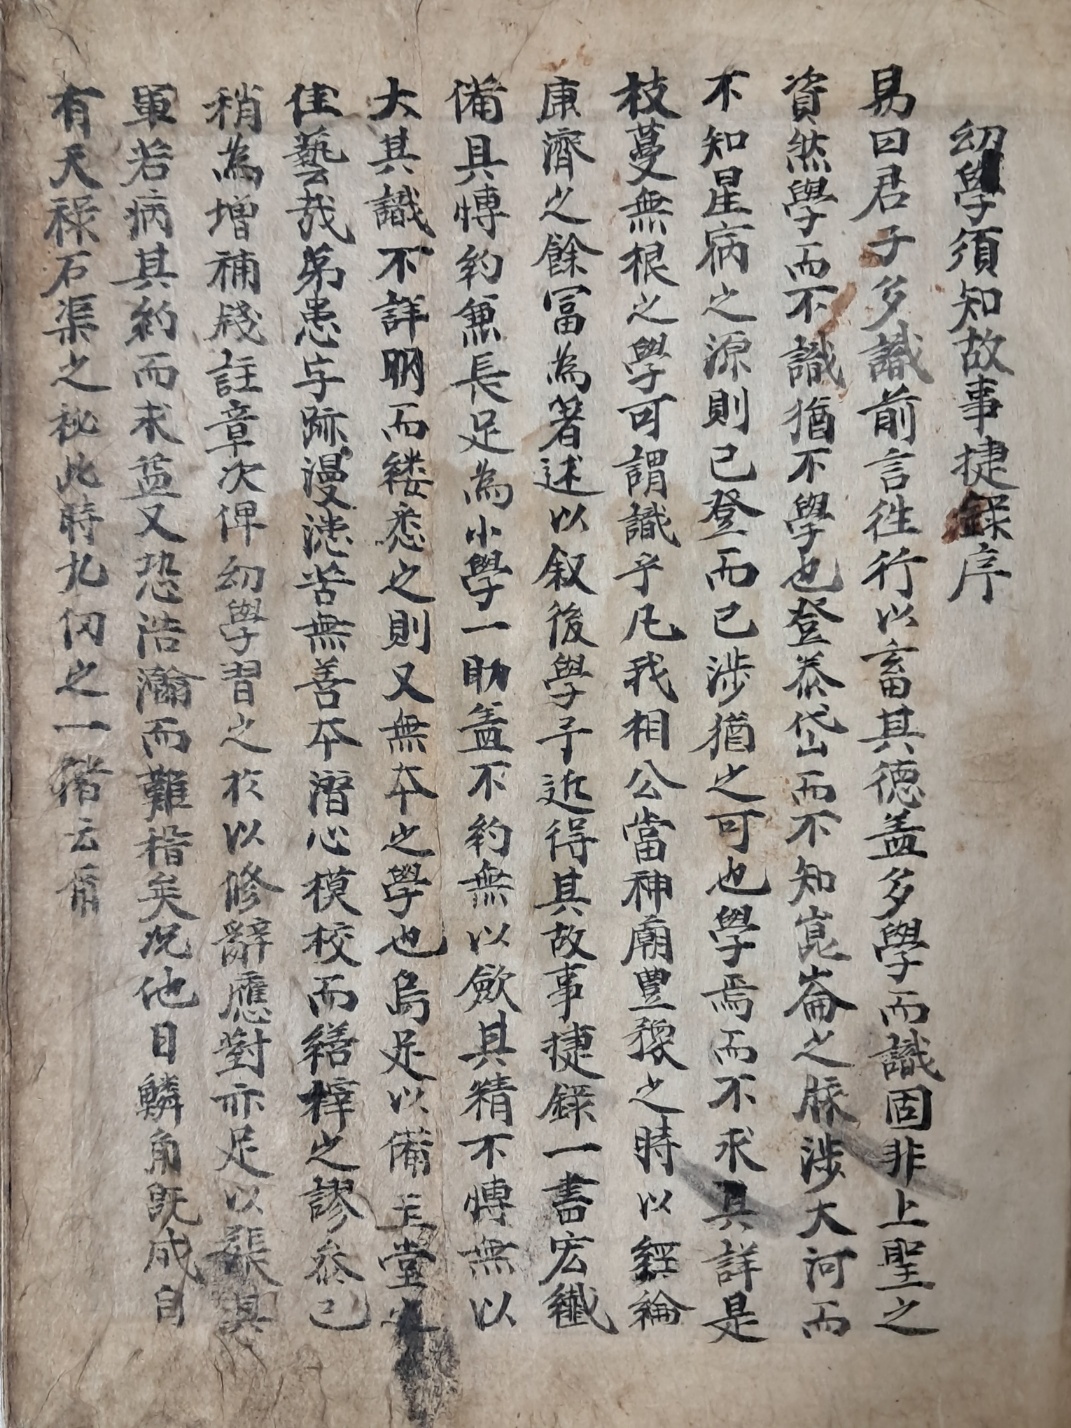 幼學須知故事捷錄序
易曰君子多識前言徃行以畜其德盖多學而識固非上聖之
資然學而不識猶不學也登泰岱而不知崑崙之脉涉大河而
不知星㾕之源則已登而已涉猶之可也學焉而不求其詳是
枝蔓無根之學可謂識乎凡我相公當神廟豊豫之時以經綸
康濟之餘冨為著述以叙後學予近得其故事捷錄一書宏纖
備具愽約兼長足為小學一助盖不約無以歛其精不愽無以
大其識不詳明而縷悉之則又無夲之學也烏足以備玉堂
佳藝哉苐患与跡漫漶苦無善夲潛心模校而繕梓之謬忝己
稍為增補牋註章次俾幼學習之於以修辭應對亦足以張其
軍若病其約而求益又恐浩瀚而難稽矣况他日鱗角既成自
有天祿石渠之秘此時九仞之一猪云爾